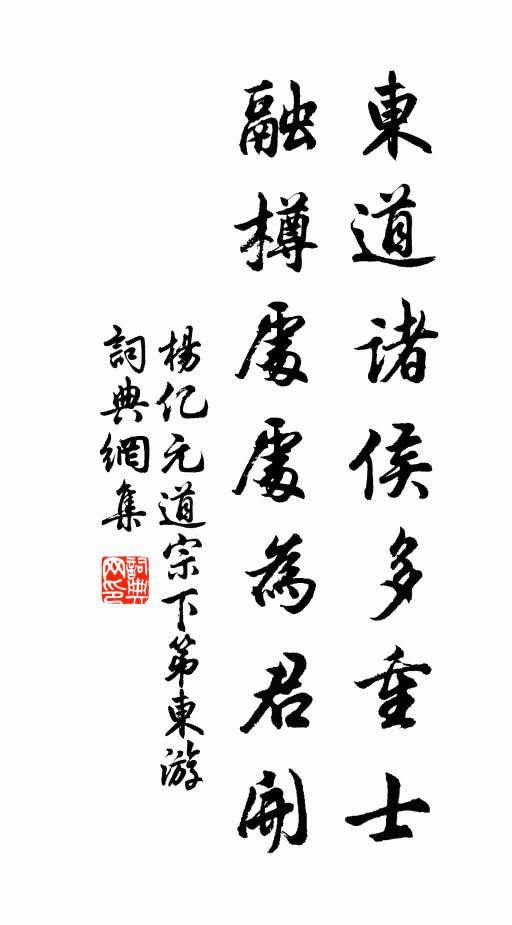 東道诸侯多重士
融樽處處為君開
楊亿元道宗下第東游
詞典網集
詞典網印